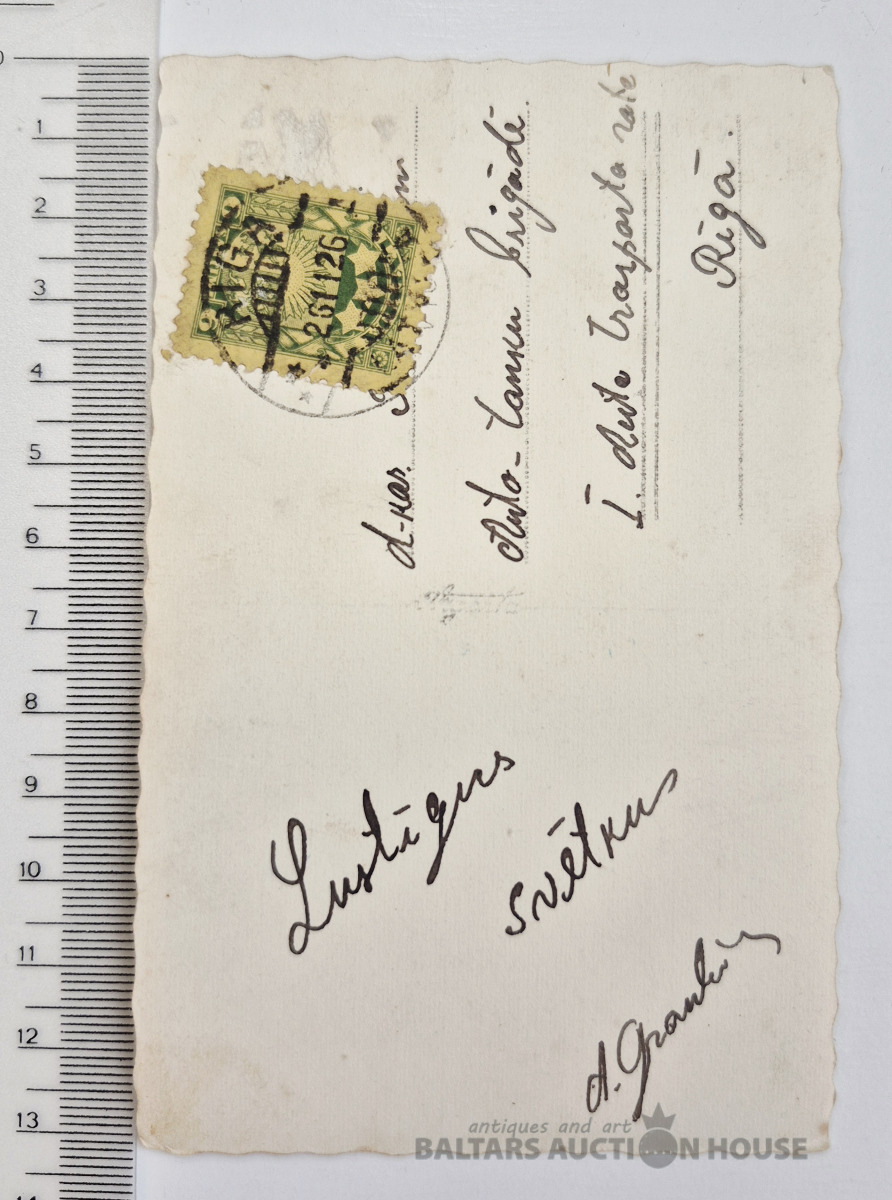 RIGA
261126
d-kar.
Auto-Tanku brigādē.
I. Auto Transporta rotē
Rīgā.
Lustīgus
svētkus
antiques and art
BALTARS AUCTION HOUSE
0
1
2
3
4
5
6
7
8
9
10
11
12
13